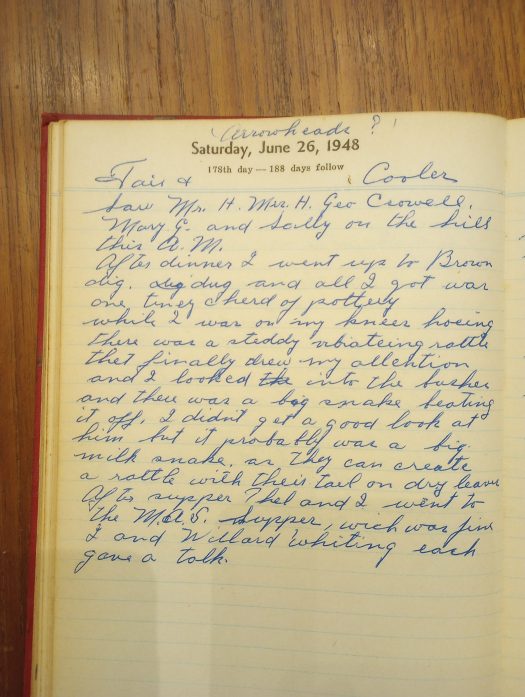 Arrowheads?
Saturday, June 26, 1948
178th day — 188 days follow
Fair & Cooler
Saw Mr. H. Mrs. H. Geo Crowell,
Mary G. and Sally on the hills
this A.M.
After dinner I went up to Brown
dig. dug and all I got was
one tiney cherd of pottery
while I was on my knees hoeing
there was a steddy vibrateing rattle
thet finally drew my attention
and I looked the into the bushes
and there was a big snake beating
it off. I didn't get a good look at
him but it probably was a big
milk snake, as they can create
a rattle with their tail on dry leaves
After supper Thel and I went to
the M.A.S. supper, wich was fine
I and Willard Whiting each
gave a talk.